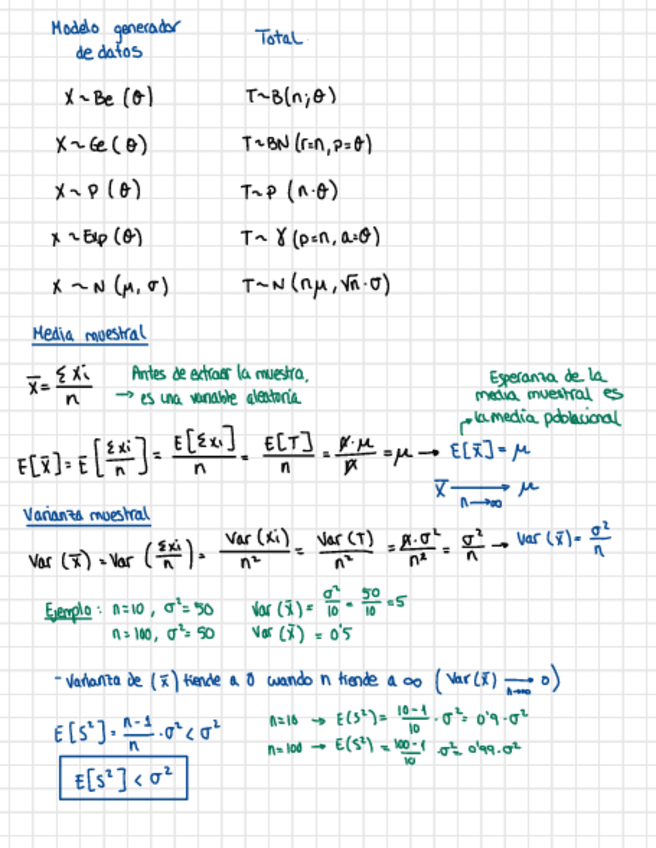 Modelo generador de datos Total
X ~ Be (θ) T~B(n;θ)
X ~ Ge (θ) T~BN (r=n, p=θ)
X ~ P (θ) T~P (n·θ)
X ~ Exp (θ) T~ γ (p=n, a=θ)
X ~ N (μ, σ) T~N (nμ, √n·σ)
Media muestral
x̄ = Σxi/n Antes de extraer la muestra, → es una variable aleatoria
Esperanza de la media muestral es la media poblacional
E[x̄] = E[Σxi/n] = E[Σxi]/n = E[T]/n = n·μ/n = μ → E[x̄] = μ
x̄ →(n→∞) μ
Varianza muestral
Var (x̄) = Var (Σxi/n) = Var (xi)/n² = Var (T)/n² = n·σ²/n² = σ²/n → Var (x̄) = σ²/n
Ejemplo: n=10, σ²=50 Var (x̄) = σ²/10 = 50/10 = 5
n=100, σ²=50 Var (x̄) = 0'5
- Varianza de (x̄) tiende a 0 cuando n tiende a ∞ (Var(x̄) →(n→∞) 0)
E[S²] = n-1/n · σ² < σ² n=10 → E(S²) = 10-1/10 · σ² = 0'9·σ²
n=100 → E(S²) = 100-1/10 σ² = 0'99·σ²
E[S²] < σ²